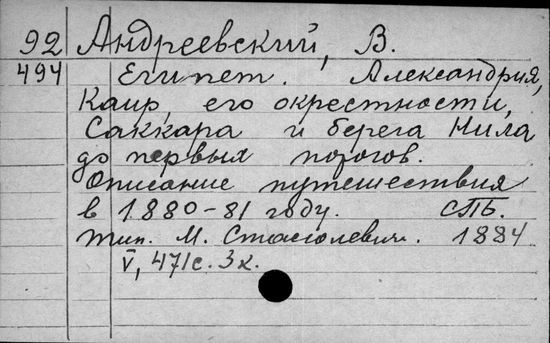 92 Андреевский, В.
494 Египет. Александрия,
Каир, его окрестности,
Саккара и берега Нила
до первых порогов.
Описание путешествия
в 1880-81 году. СПБ.
тип. М. Стасюлевич. 1884
V, 471с. 3к.